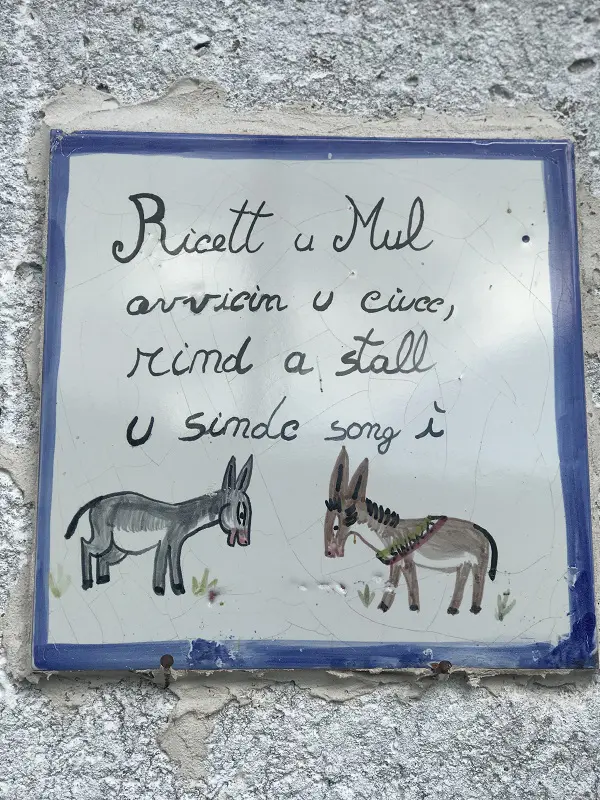 Ricett u Mul
avvicin u ciucc,
rind a stall
u sindc song i